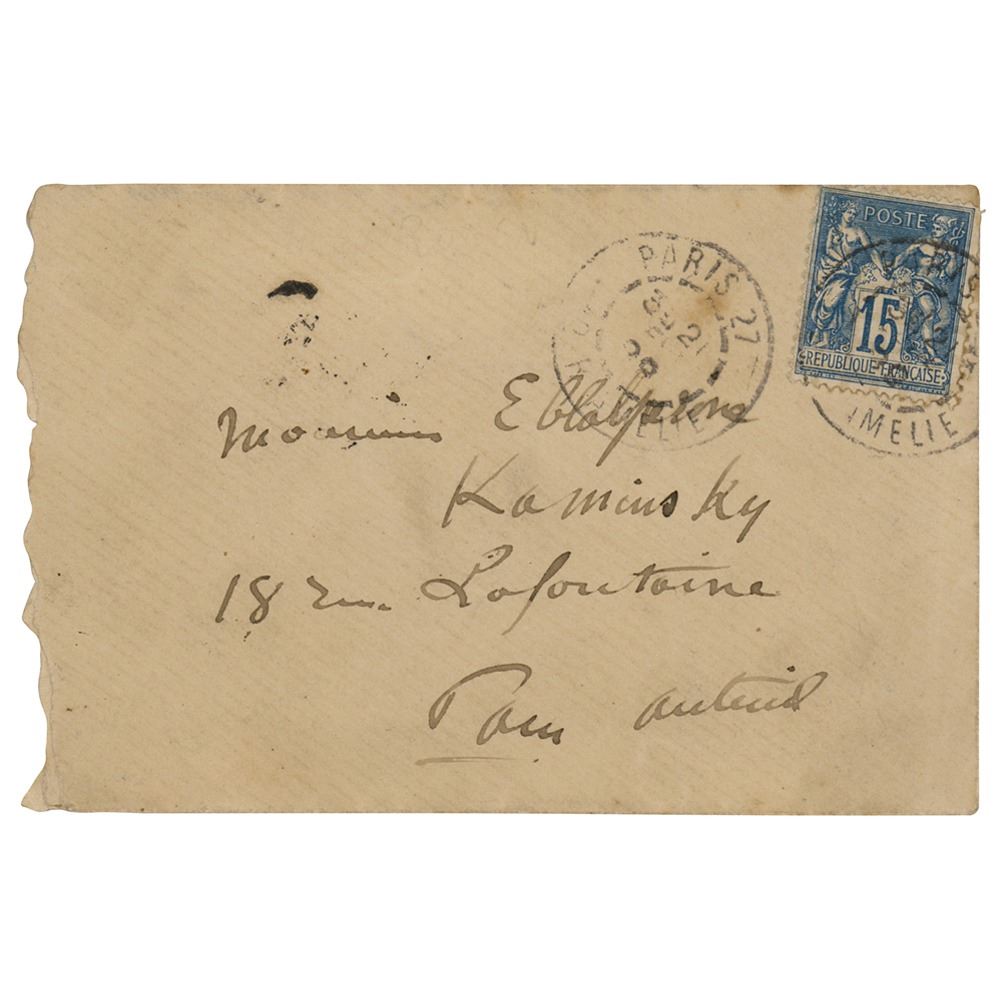 POSTE
15
REPUBLIQUE FRANÇAISE
PARIS 27
21
PARIS
IMELIE
Monsieur E
Kaminsky
18 rue Lafontaine
Paris auteuil